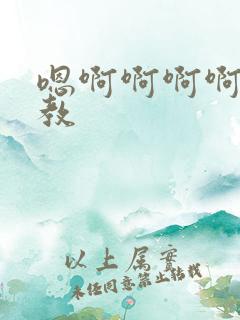 嗯啊啊啊啊
教
以上属实
未经同意禁止转载